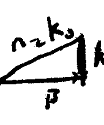 n₂k₀
h
β